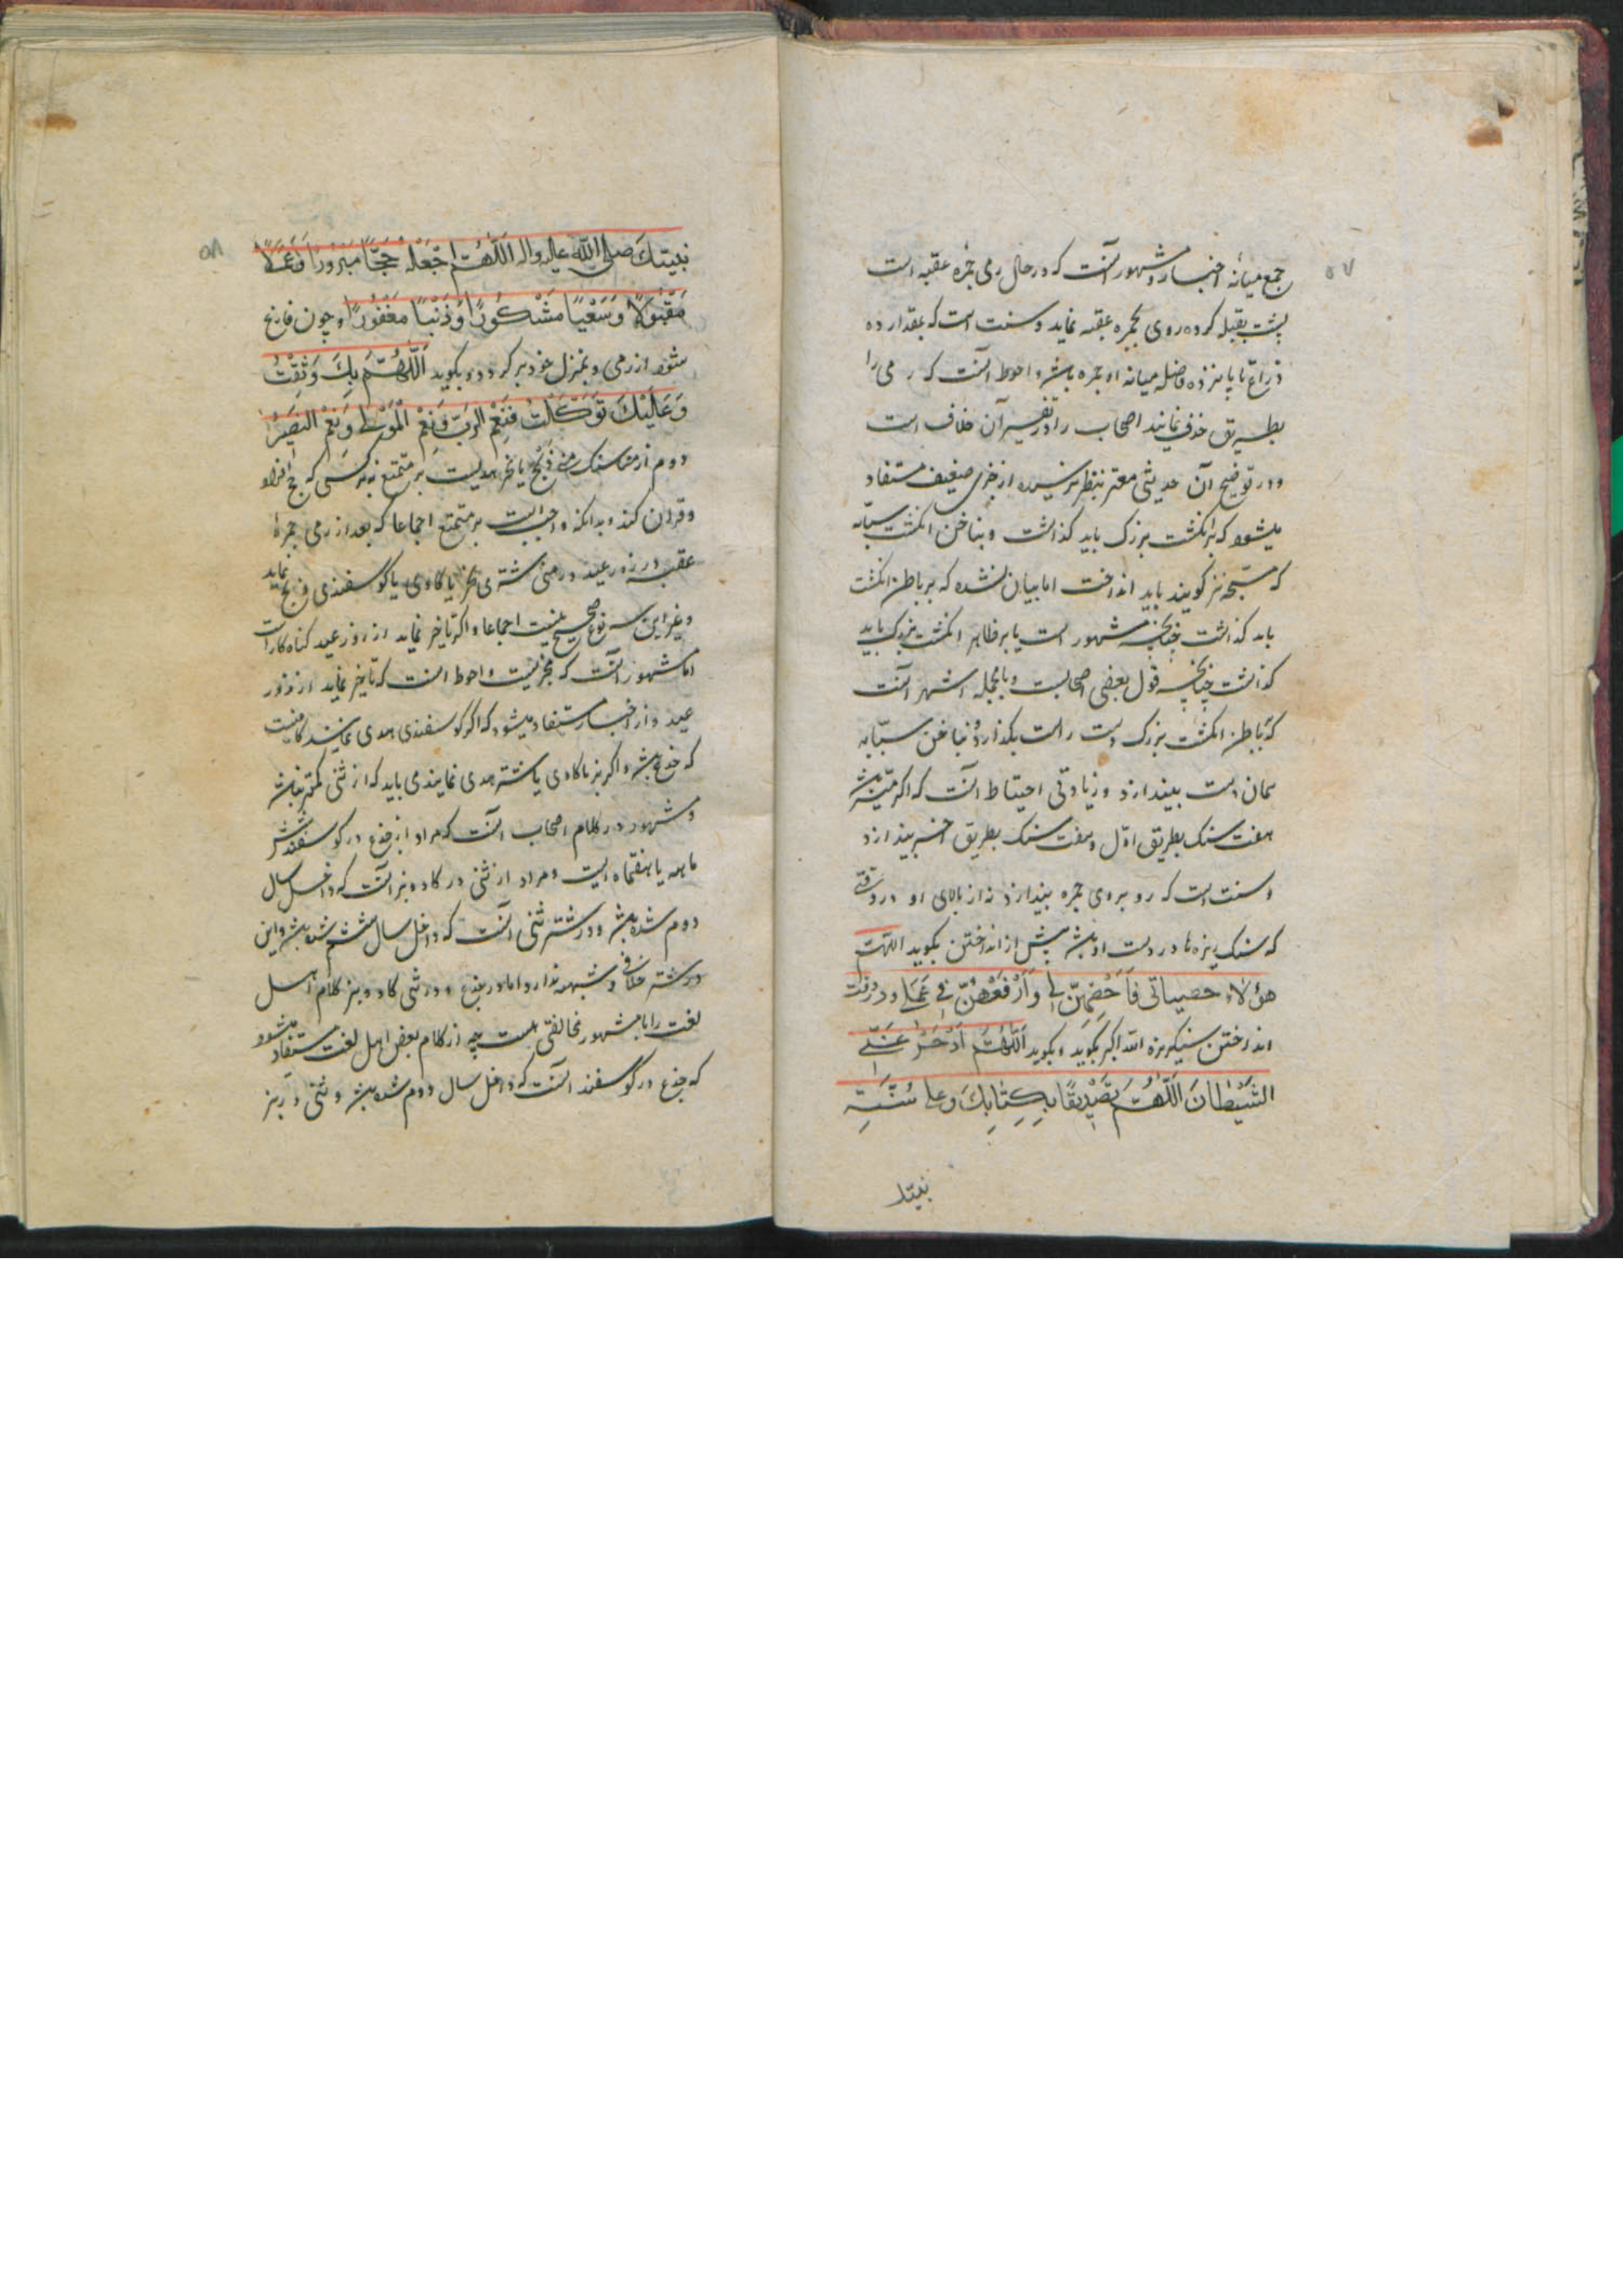 ۵۷
جمع میانه اخبار و مشهور آنست که در حال رمی جمره عقبه است
پشت بقبله کرده روی بجمره عقبه نماید و سنت است که بمقدار ده
ذراع تا پانزده فاصله میانه او و جمره باشد و احوط آنست که رمی را
بطریق خذف نمایند اصحاب را در تفسیر آن خلاف است
و در توضیح آن حدیثی معتبر بنظر نرسیده از خبری ضعیف مستفاد
میشود که بر انگشت بزرگ باید گذاشت و بناخن انگشت سبابه
که مسبحه نیز گویند باید انداخت اما بیان نشده که بر باطن انگشت
باید گذاشت چنانچه مشهور است یا بر ظاهر انگشت بزرگ باید
گذاشت چنانچه قول بعضی اصحابست و بالجمله اشهر آنست
که بباطن انگشت بزرگ دست راست بگذارد و بناخن سبابه
همان دست بیندازد و زیادتی احتیاط آنست که اگر میسر باشد
هفت سنک بطریق اول و هفت سنک بطریق اخیر بیندازد
و سنت است که رو بروی جمره بیندازد نه از بالای او و در وقتی
که سنک ریزه‌ها در دست او باشد پیش از انداختن بگوید اللهم
هؤلاء حصیاتی فَاَحْصِهِنَّ لی وَارْفَعْهُنَّ فی عَمَلی و در وقت
انداختن سنکریزه الله اکبر بگوید و بگوید اَللّٰهُمَّ ادْحَرْ عَنّی
الشَّیْطانَ اَللّٰهُمَّ تَصْدیقًا بِکِتابِكَ وَعلی سُنَّةِ
نبیك
۵۸
نبیِّكَ صلی الله علیه واله اَللّٰهُمَّ اجْعَلْهُ حَجًّا مَبْرُورًا وَعَمَلًا
مَقْبُولًا وَسَعْیًا مَشْکُورًا وَذَنْبًا مَغْفُورًا و چون فارغ
شود از رمی و بمنزل خود برگردد بگوید اَللّٰهُمَّ بِكَ وَثِقْتُ
وَعَلَیْكَ تَوَکَّلْتُ فَنِعْمَ الرَّبُّ وَنِعْمَ الْمَوْلی وَنِعْمَ النَّصیرُ
دوم از مناسک منی ذبح یا نحر هدیست بر متمتع نه بر کسی که حج افراد
و قران کند و بدانکه واجبست بر متمتع اجماعا که بعد از رمی جمرهٔ
عقبه در روز عید در منی شتری نحر یا گاوی یا گوسفندی ذبح نماید
و غیر این سه نوع صحیح نیست اجماعا و اگر تاخیر نماید از روز عید گناه‌کار است
اما مشهور آنست که مجزیست و احوط آنست که تاخیر نماید از روز
عید و از اخبار مستفاد میشود که اگر گوسفندی هدی نمایند کافیست
که جذع باشد و اگر بز یا گاوی یا شتر هدی نمایند می باید که از ثنی کمتر نباشد
و مشهور در کلام اصحاب آنست که مراد از جذع در گوسفند شش
ماهه یا هفتماه است و مراد از ثنی در گاو و بز آنست که داخل سال
دوم شده باشد و در شتر ثنی آنست که داخل سال ششم شده باشد و این
در شتر خلاف و شبهه ندارد اما در جذع و در ثنی گاو و بز کلام اهل
لغت را با مشهور مخالفتی هست چه از کلام بعض اهل لغت مستفاد میشود
که جذع در گوسفند آنست که داخل سال دوم شده باشد و ثنی در بز